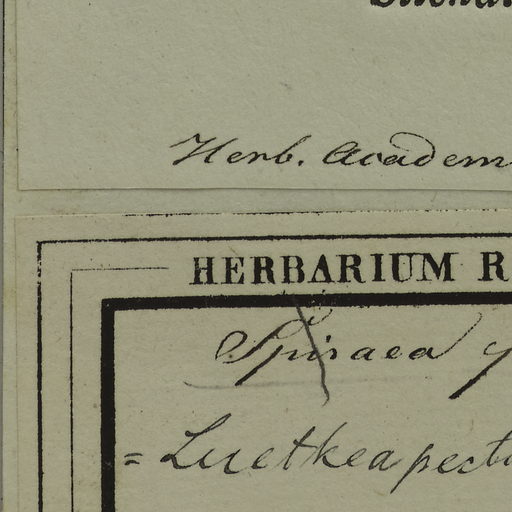 Herb. Academ
HERBARIUM R
Spiraea
= Luetkea pecti